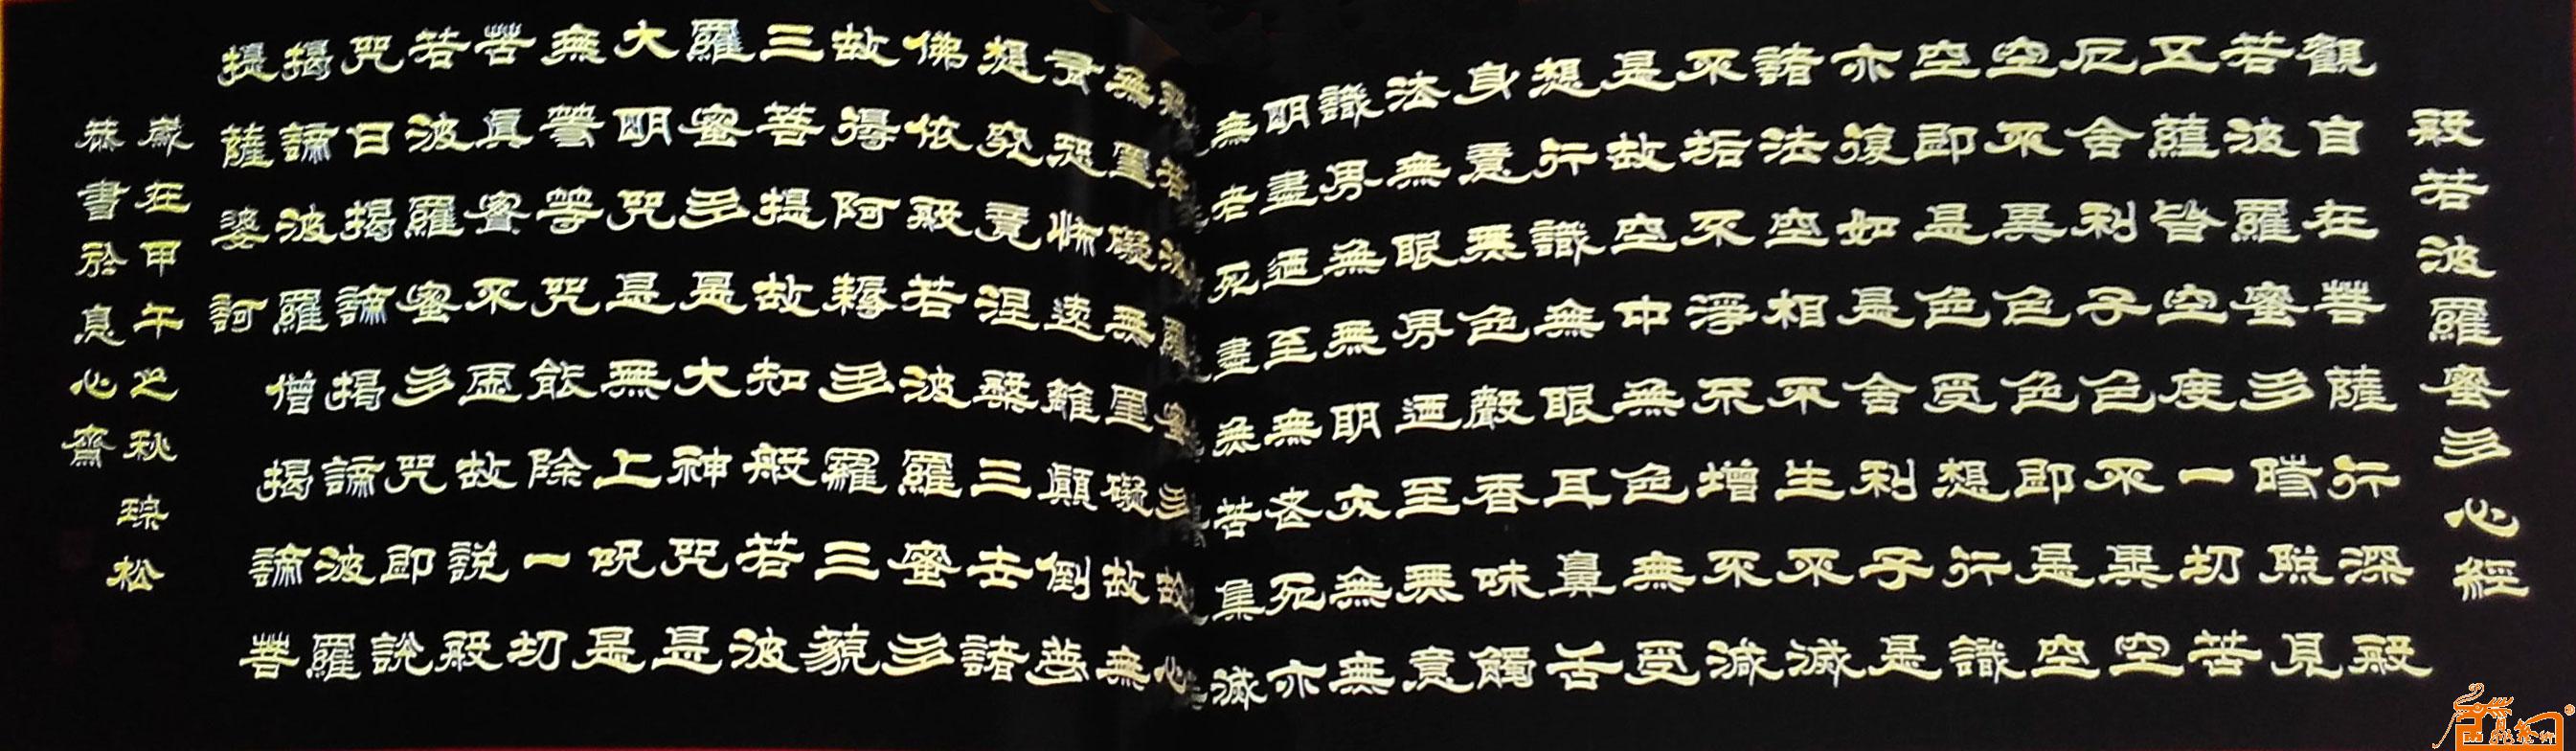 般若波羅蜜多心經
觀自在菩薩行深般
若波羅蜜多時照見
五蘊皆空度一切苦
厄舍利子色不異空
空不異色色即是空
空即是色受想行識
亦復如是舍利子是
諸法空相不生不滅
不垢不淨不增不減
是故空中無色無受
想行識無眼耳鼻舌
身意無色聲香味觸
法無眼界迺至無意
識界無無明亦無無
明盡迺至無老死亦
無老死盡無苦集滅
般若波羅蜜多故心
無罣礙無罣礙故無
有恐怖遠離顛倒夢
想究竟涅槃三世諸
佛依般若波羅蜜多
故得阿耨多羅三藐
三菩提故知般若波
羅蜜多是大神咒是
大明咒是無上呪是
無等等咒能除一切
苦真實不虛故說般
若波羅蜜多咒即說
咒曰揭諦揭諦波羅
揭諦波羅僧揭諦菩
提薩婆訶
歲在甲午之秋松
恭書於息心齋